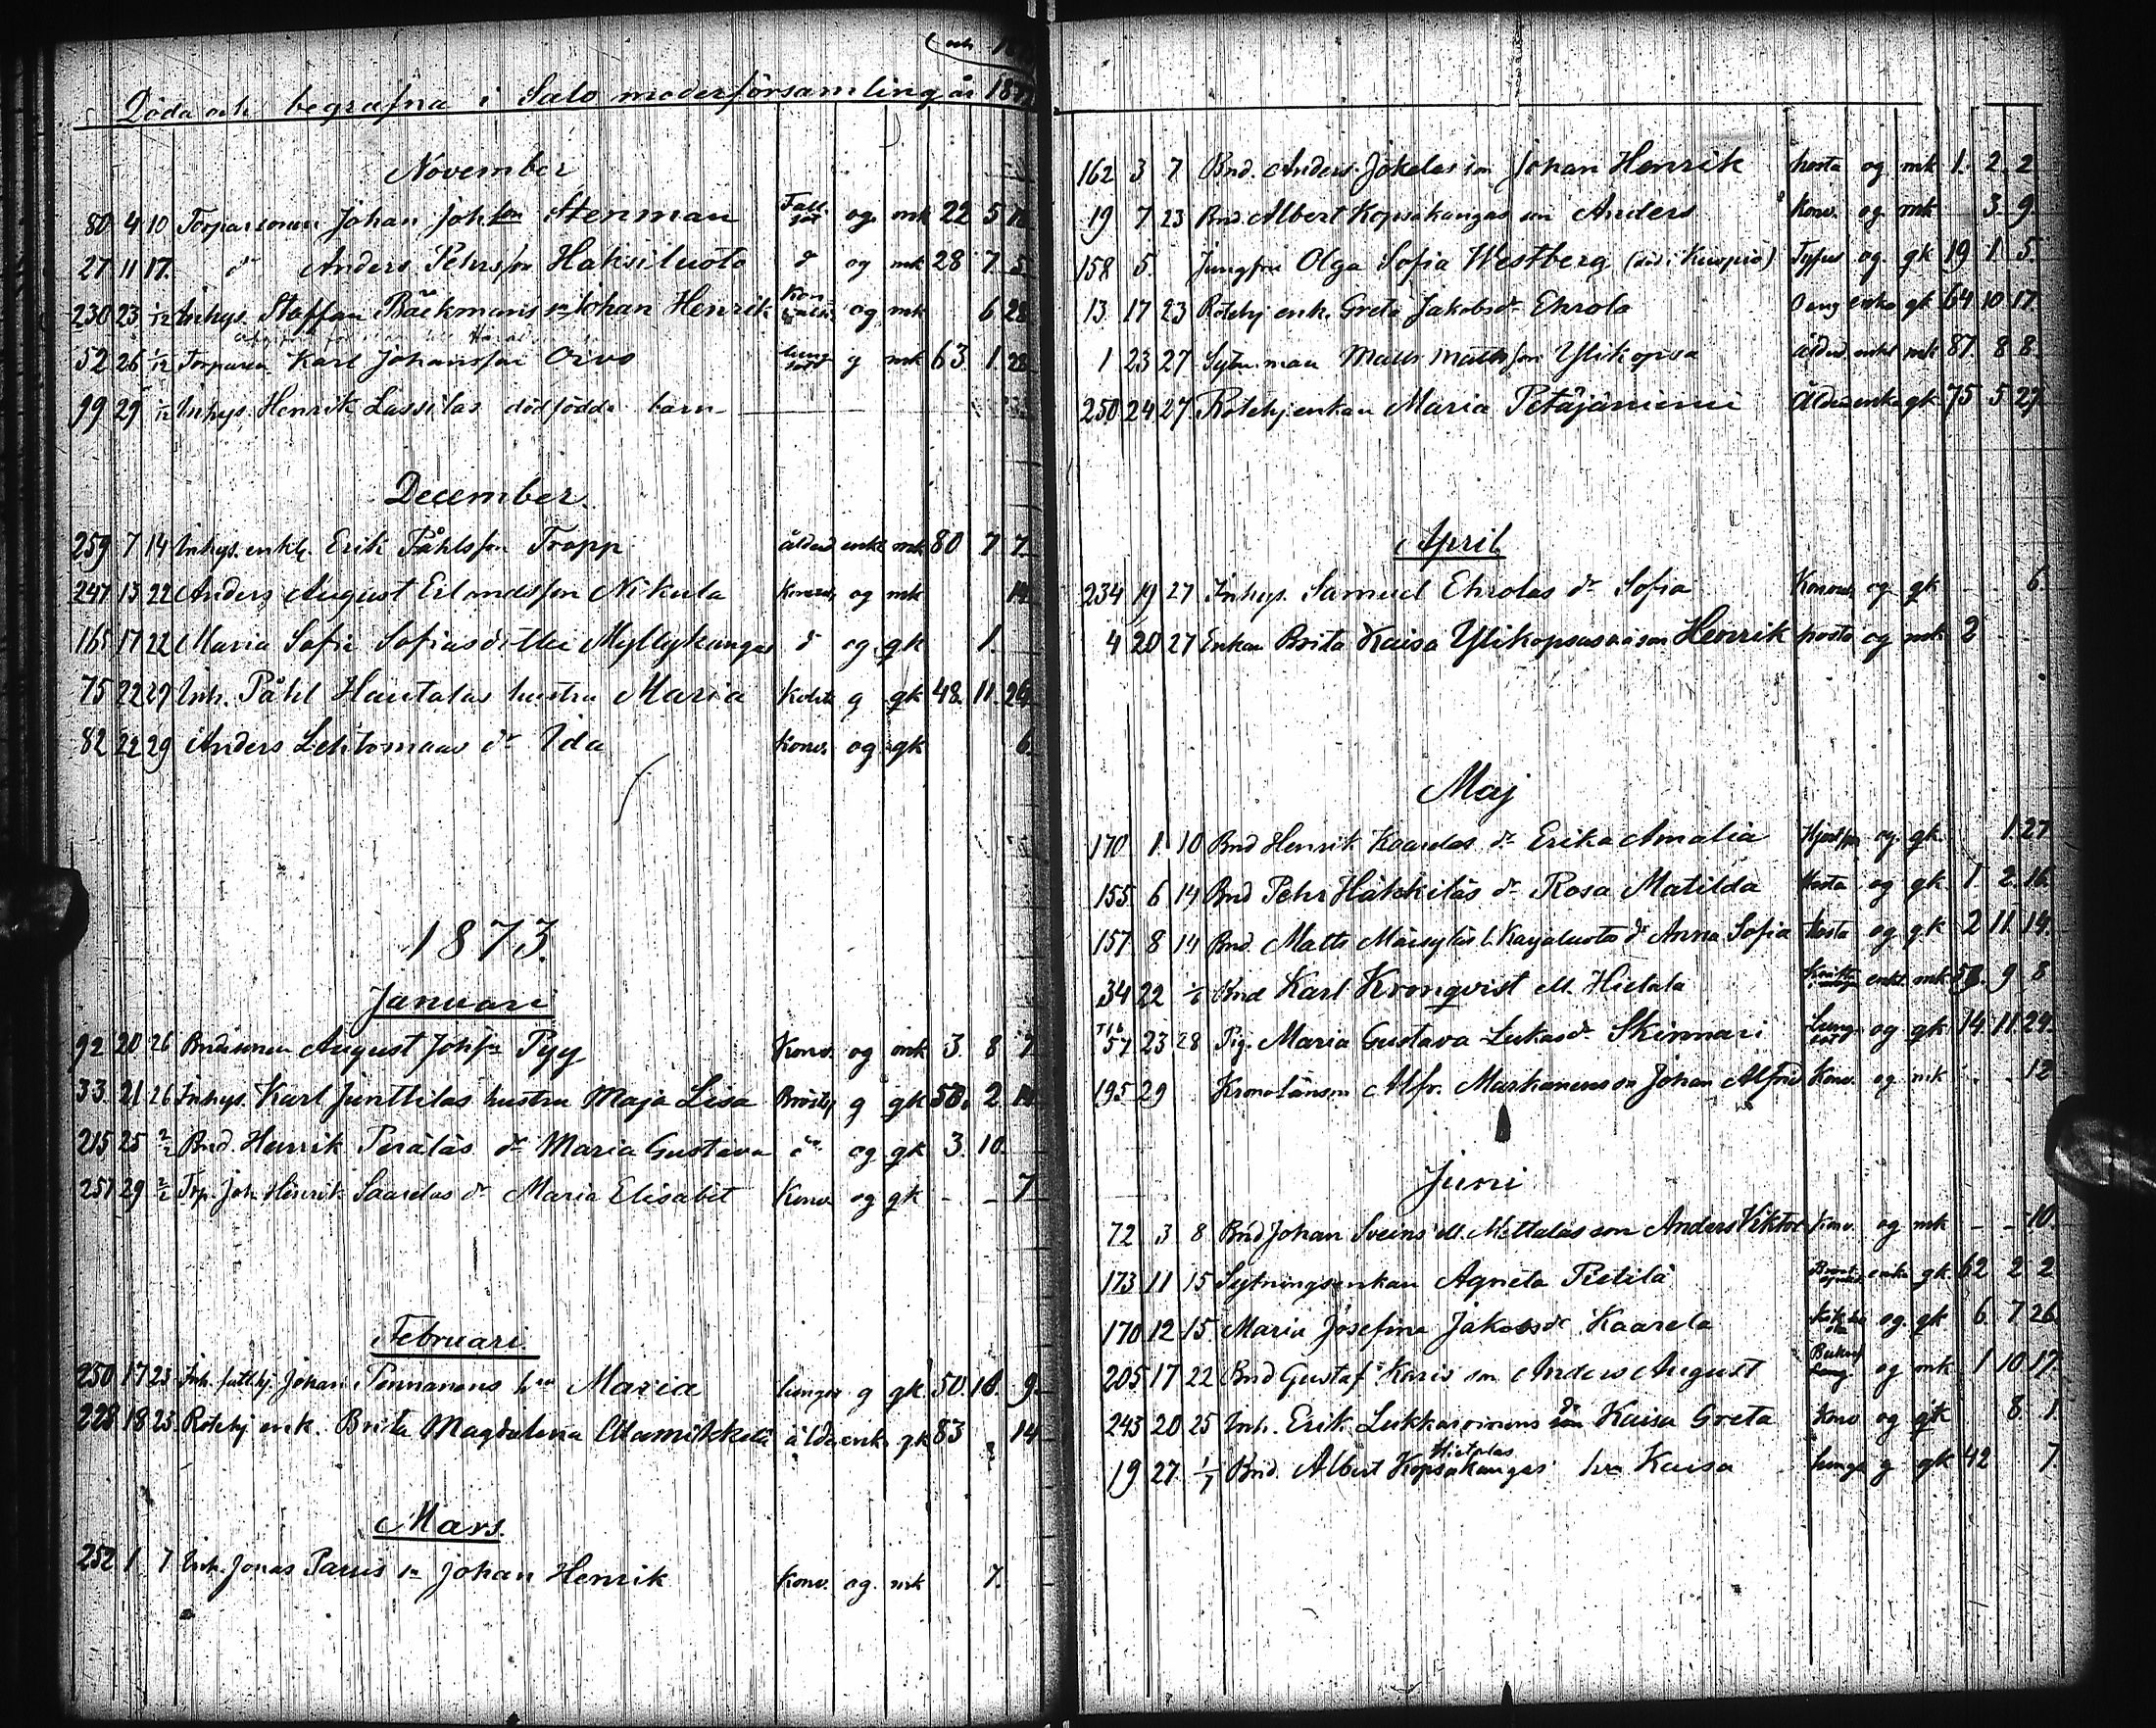 Döda och begrafna i Salo moderförsamling år 187
November
80 4 10 Torparsonen Johan Johsson Stenman Fall sot og mk 22 5
27 11 17. d Anders Pehrsson Haksiluoto d og mk 28 7 5
230 23 1/12 Inhys. Staffan Bäckmans sn Johan Henrik og mk 6 22
52 26 1/12 Torparen Karl Johansson Orvo lung sot g mk 63 1 22
99 29 1/12 Inhys. Henrik Lassilas dödfödda barn
December.
259 7 14 Inhys. enkl. Erik Påhlsson Tropp ålderd enkl mk 80 7 7
247 13 22 Anders August Erlandsson Nikula Konvuls og mk 14
165 17 22 Maria Sofia Sofiasdotter Myllykangas d og gk 1.
75 22 29 Inh. Påhl Hautalas hustru Maria g gk 48. 11. 26
82 22 29 Anders Lehtomaas dr Ida Konv. og gk 6
1873.
Januari
92 20 26 Bndesonen August Johsn Pyy Konv. og mk 3. 8 7
33 21 26 Inhys. Karl Junttilas hustru Maja Lisa g gk 50. 2
215 25 2/2 Bnd. Henrik Perälās dr Maria Gustava og gk 3. 10.
257 29 2/2 Torp. Joh. Henrik Saarelas dr Maria Elisabet Konv. og gk - - 7
Februari.
250 17 23 Inh. fatthj. Johan Pennanens hu Maria lungs g gk 50. 10. 9
228 18 23 Rotehj enk. Brita Magdalena ålder enk. gk 83 14
Mars.
252 1 7 Inh. Jonas Parris sn Johan Henrik Konv. og. mk 7.
162 3 7 Bnd. Anders Jokelas son Johan Henrik hosta og mk 1. 2. 2
19 7 23 Bnd. Albert Kopsakangas son Anders Konv. og mk 3. 9.
158 5. Jungfru Olga Sofia Westberg (död i Kuopio) Tyfus og gk 19 1 5.
13. 17 23 Rotehj enk. Greta Jakobsdr Ehrola enka gk 64 10 17.
1 23 27 Sytn. man Matts Mattsson Ylikopsa ålderd. enkl mk 87. 8 8.
250 24 27. Rotehjenkan Maria Petäjäniemi Ålderd enka gk 75 5 27
April
234 19 27 Inhys. Samuel Ehrolas dr Sofia Konvuls og gk 6.
4 20 27 Enkan Brita Kaisa Ylikopsas son Henrik hosta og mk 2
Maj
170 1. 10 Bnd Henrik Kaarelas dr Erika Amalia og gk 1. 27
155. 6 14 Bnd Pehr Häkkiläs dr Rosa Matilda Hosta og gk 1 2. 16
157. 8 14 Bnd. Matts l. Karjaluoto dr Anna Sofia hosta og gk 2 11 14.
34 22 1/6 Bnd Karl Kronqvist ell. Hietala enkl. mk 9 8
57 23 28 Pig. Maria Gustava Lukasdr Skinnari Lung sot og gk 14. 11 24.
195 29 Kronolänsm Alfr. Markanens son Johan Alfrid Konv. og mk 12
Juni
72 3 8 Bnd Johan Sveins ell. Mettalas son Anders Viktor Konv. og mk - - 10
173 11 15 Sytningsenkan Agneta Pietilä enka gk. 62 2 2
170 12 15 Maria Josefina Jakobsdr Kaarela og gk 6. 7 26
205 17 22 Bnd Gustaf Karis son Anders August og mk 1 10 17.
243 20 25 Inh. Erik Lukkaroinens dr Kaisa Greta Konv og gk 8. 1
Hietalas
19 27 1/7 Bnd. Albert Kopsakangas hu Kaisa lungs g gk 42 7